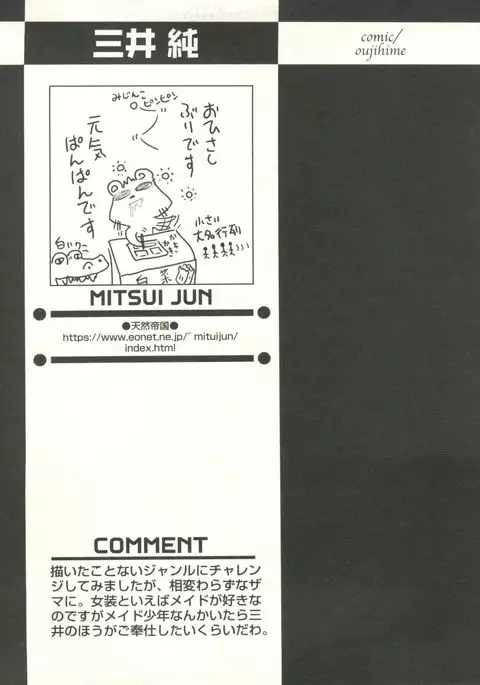 三井 純
comic/
oujihime
おひさし
ぶりです
みじんこ
ピンピン
元気
ぱんぱんです
白いワニ
小さい
大名行列
かきかき
白菜
MITSUI JUN
●天然帝国●
https://www.eonet.ne.jp/~mituijun/
index.html
COMMENT
描いたことないジャンルにチャレン
ジしてみましたが、相変わらずなザ
マに。女装といえばメイドが好きな
のですがメイド少年なんかいたら三
井のほうがご奉仕したいくらいだわ。